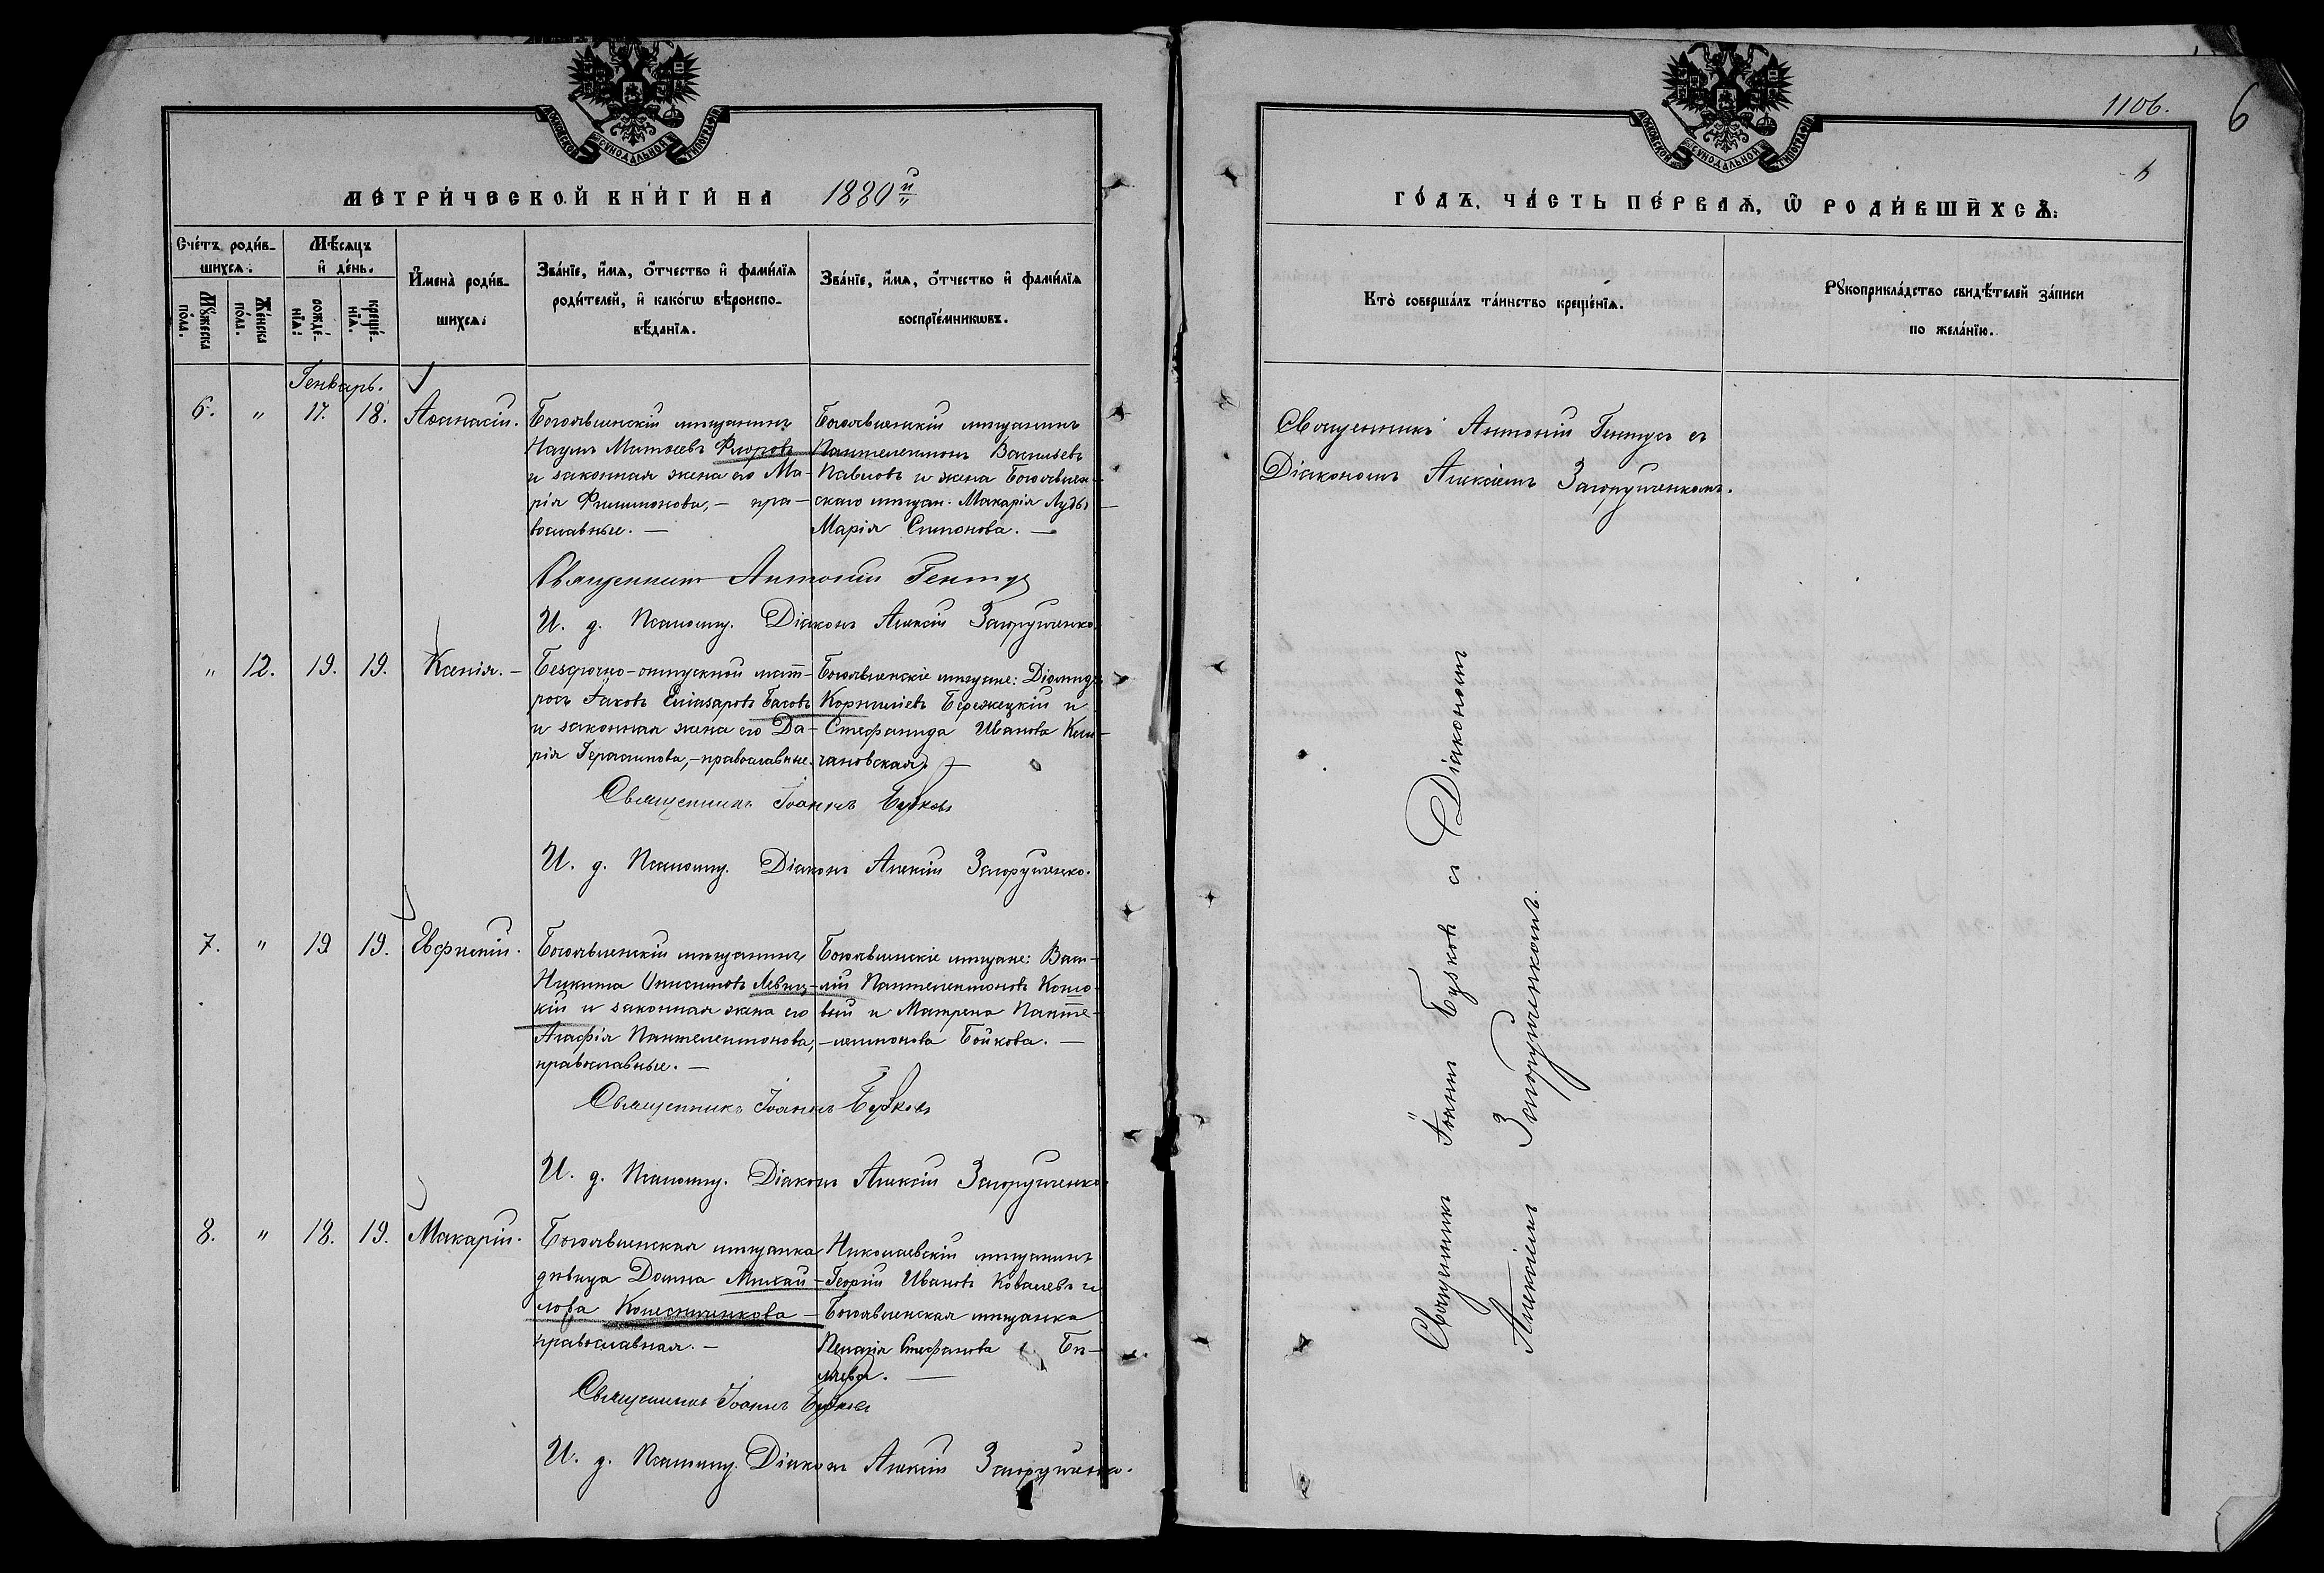 МОСКОВСКОЙ СУНОДАЛЬНОЙ ТИПОГРАФІИ
МЕТРИ́ЧЕСКОЙ КНИ́ГИ НА 1880й
Сче́тъ роди́в-
шихся.
Мѣ́сяцъ
и҆ де́нь.
И҆мена̀ роди́в-
шихся.
Зва́нїе, и҆́мя, ѻ҆́тчество и҆ фами́лїя
роди́телей, и҆ како́гѡ вѣроиспо-
вѣ́данїя.
Зва́нїе, и҆́мя, ѻ҆́тчество и҆ фами́лїя
воспрїе́мникѡвъ.
Мꙋ́жеска
по́ла.
Же́нска
по́ла.
рожде́-
нїя.
креще́-
нїя.
Генварь.
6. " 17. 18. Аѳанасій.
Богоявленскій мѣщанинъ
Наумъ Матѳеевъ Флоровъ
и законная жена его Ма-
рія Филимонова, – пра-
вославные. –
Богоявленскій мѣщанинъ
Пантелеимонъ Васильевъ
Павловъ и жена Богоявлен-
скаго мѣщан. Макарія
Марія Симонова. –
Священникъ Антоній Гентуъ
И. д. Псаломщ. Діаконъ Алексій Загорульченко.
" 12. 19. 19. Ксенія. –
Безсрочно-отпускной мат-
росъ Іаковъ Еліазаровъ Басовъ
и законная жена его Да-
рія Герасимова, – православные.
Богоявленскіе мѣщане: Діомидъ
Корниліевъ Бережецкій и
Стефанида Иванова Кли-
чановская. –
Священникъ Іоаннъ Бужковъ
И. д. Псаломщ. Діаконъ Алексій Загорульченко.
7. " 19 19. Евфимій.
Богоявленскій мѣщанинъ
Никита Онисимовъ Левиц-
кій и законная жена его
Агафія Пантелеимонова,
православные. –
Богоявленскіе мѣщане: Васи-
лій Пантелеимоновъ
и Матрена Панте-
леимонова Бойкова. –
Священникъ Іоаннъ Бужковъ
И. д. Псаломщ. Діаконъ Алексій Загорульченко.
8. " 18. 19. Макарій.
Богоявленская мѣщанка
дѣвица Домна Михай-
лова Колесниченкова –
православная. –
Николаевскій мѣщанинъ
Георгій Ивановъ Ковалевъ и
Богоявленская мѣщанка
Пелагія Стефанова Бѣ-
ляева. –
Священникъ Іоаннъ Бужковъ
И. д. Псаломщ. Діаконъ Алексій Загорульченко.
МОСКОВСКОЙ СУНОДАЛЬНОЙ ТИПОГРАФІИ
1106.
6
6
ГО́ДЪ, ЧА́СТЬ ПЕ́РВАЯ, Ѡ҆ РОДИ́ВШИХСЯ:
Кто̀ соверша́лъ та́инство креще́нїя.
Рꙋкоприкла́дство свидѣ́телей за́писи
по жела́нїю.
Священникъ Антоній Гентуъ съ
Діакономъ Алексіемъ Загорульченкомъ.
Священникъ Іоаннъ Бужковъ съ Діакономъ
Алексіемъ Загорульченкомъ.